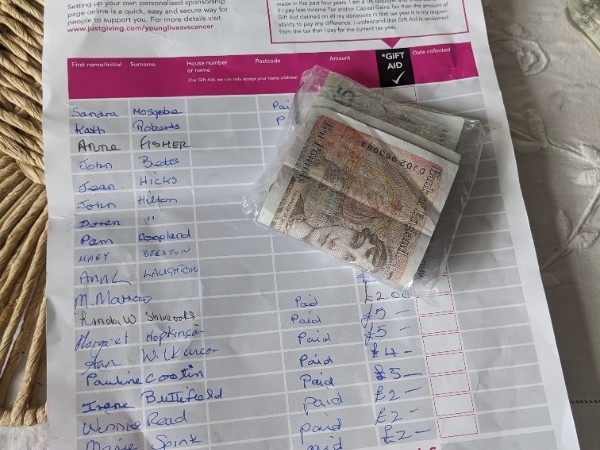 Setting up your own personalised sponsorship
page online is a quick, easy and secure way for
people to support you. For more details visit
www.justgiving.com/younglivesvscancer
made in the past four years. I am a UK
if I pay less Income Tax and/or Capital Gains Tax than the amount of
Gift Aid claimed on all my donations in that tax year it is my
ability to pay any difference. I understand that Gift Aid is reclaimed
from the tax that I pay for the current tax year.
First name/initial Surname House number or name Postcode Amount *GIFT AID ✓ Date collected
(For Gift Aid, we can only accept your home address)
Sandra Pai
Kath Roberts P
ANNE FISHER
John Bates
Jean Hicks
John Hilton
"
Pam Copeland
MARY BEESTON
ANN L LAUGHTON
M. £2.00
Linda W Paid £5 —
Margaret Hopkinson Paid £5 —
Paid £4 —
Pauline Paid £5 —
Irene Paid £2 —
Winnie Read Paid £2 —
Marie Spink Paid £2 —
5
Ten Pounds
Bank of England